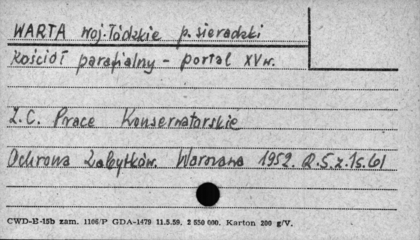 WARTA woj. łódzkie p. sieradzki
kościół parafialny - portal XV w.
Z. C. Prace Konserwatorskie
Ochrona Zabytków. Warszawa 1952. R.5.z.1s.61
CWD-B-15b zam. 1106/P GDA-1479 11.5.59. 2 850 000. Karton 200 g/V.